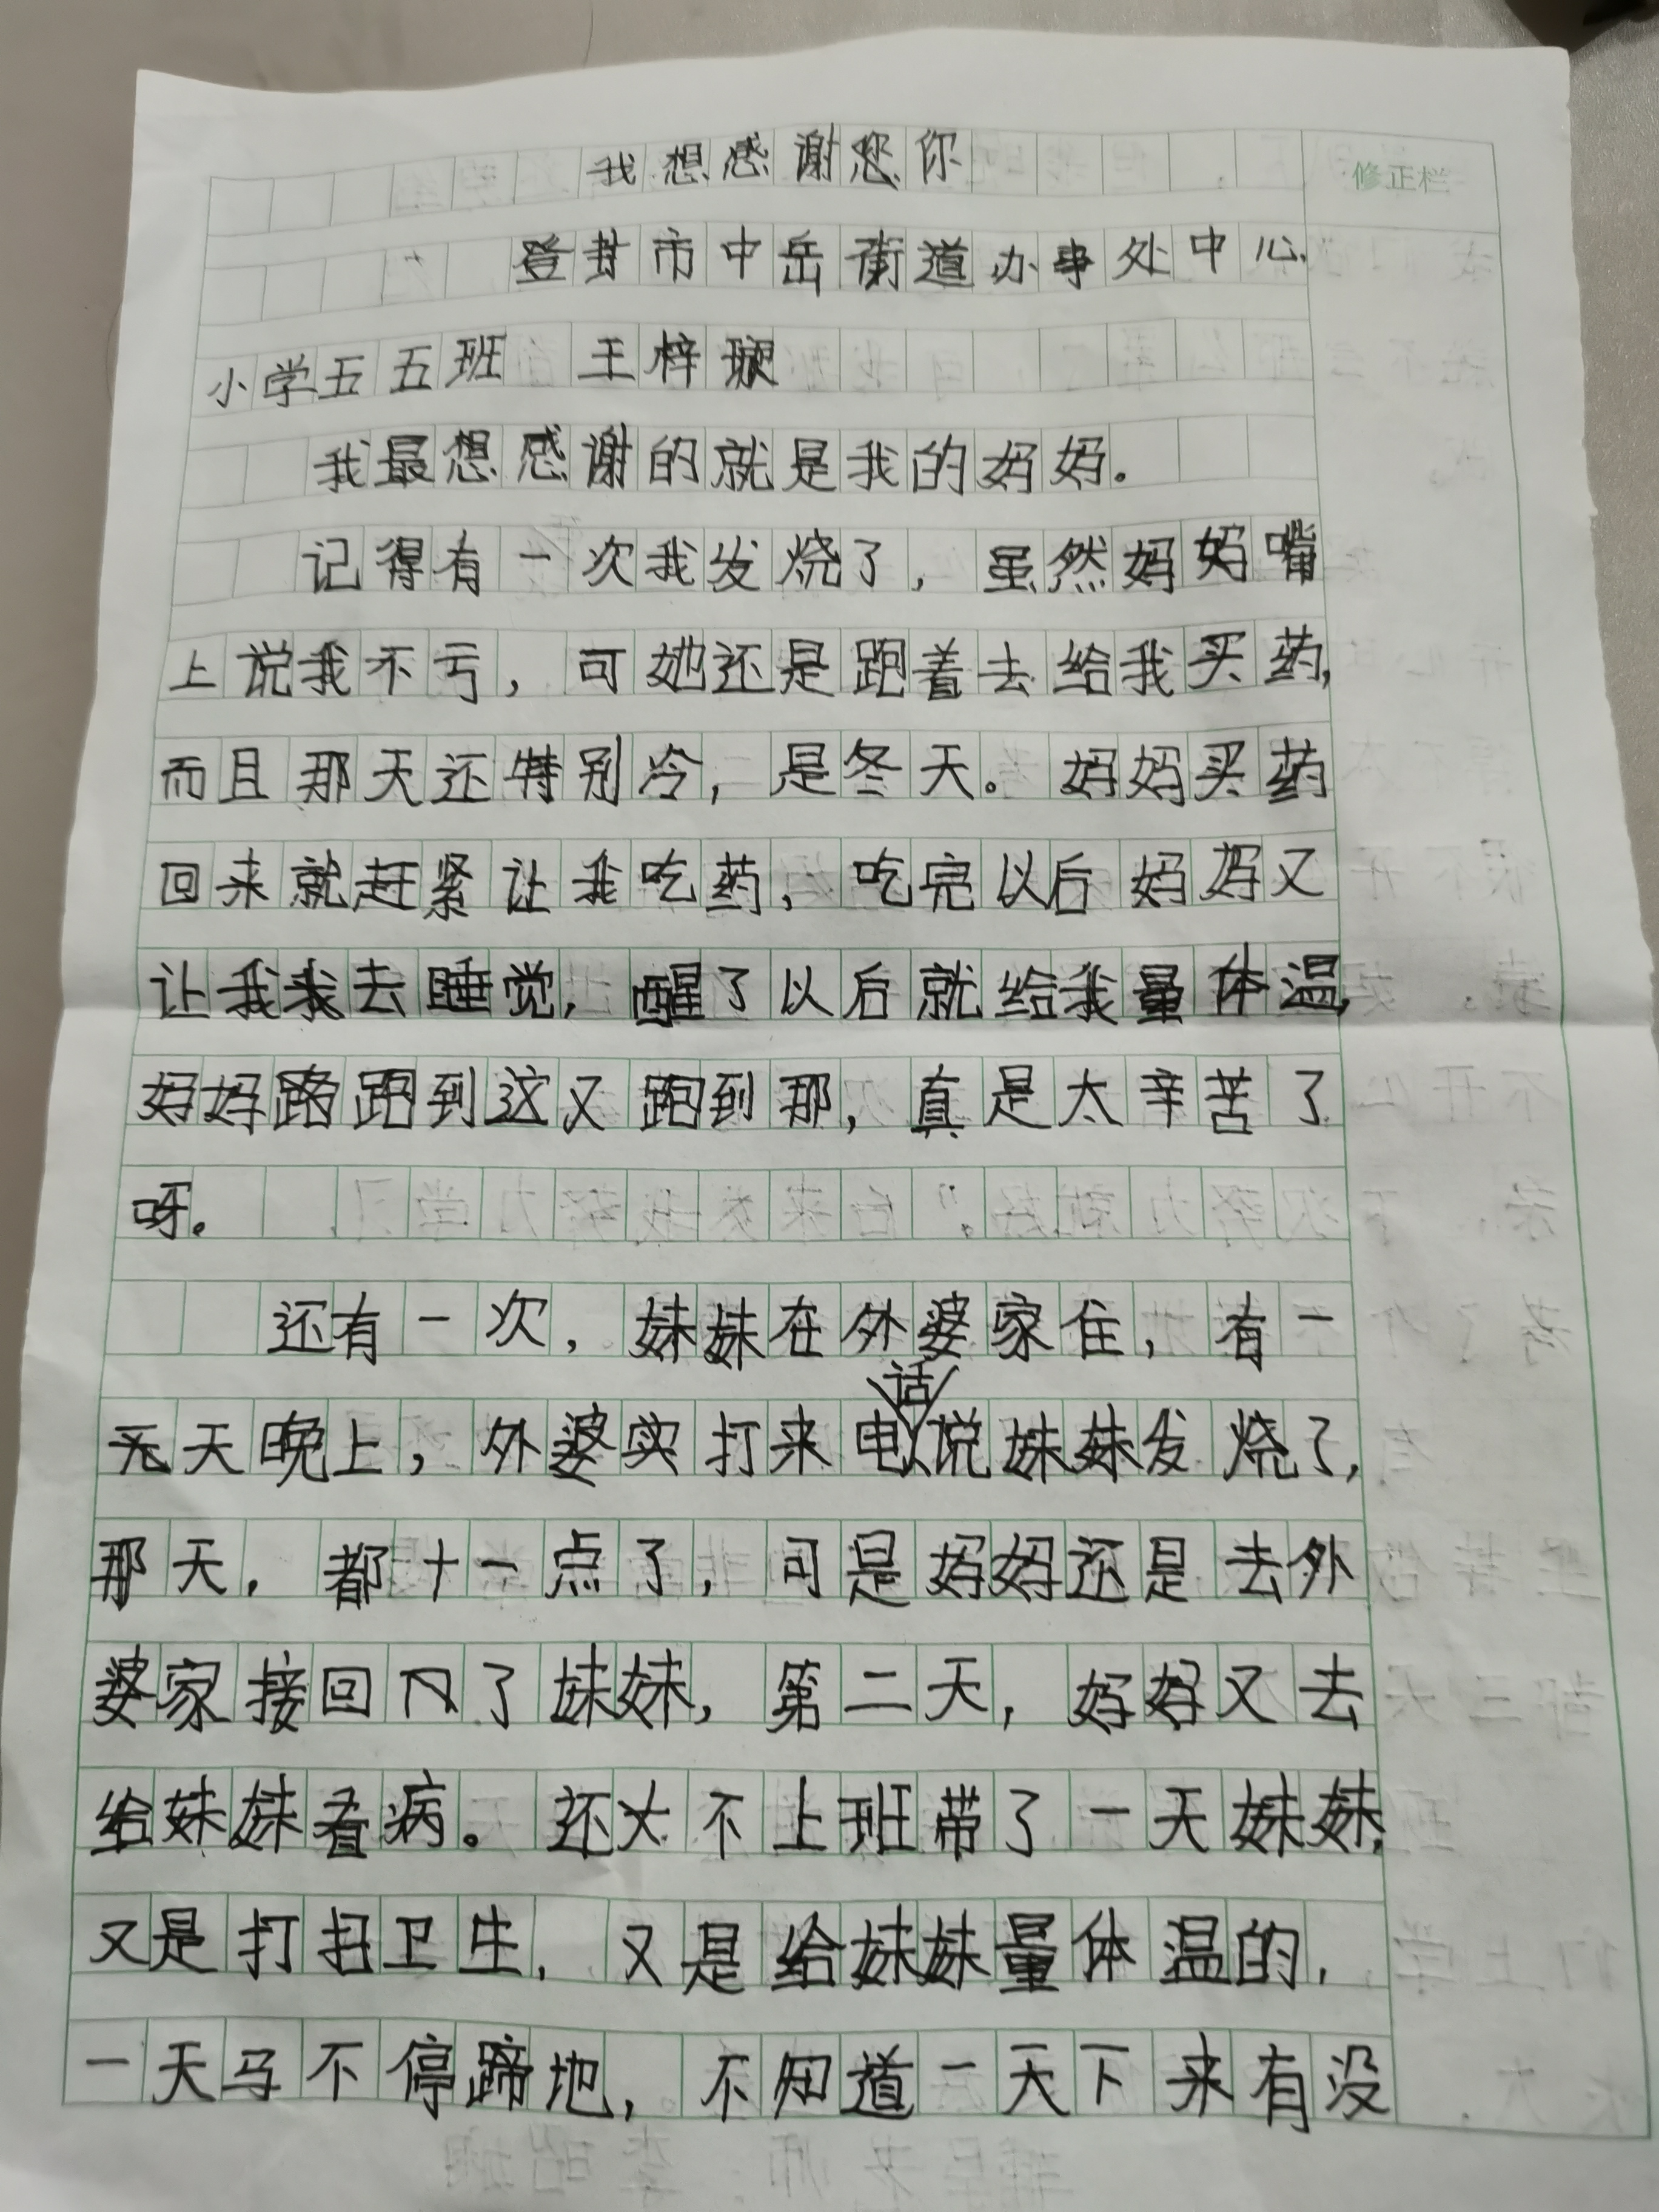 我想感谢您你
修正栏
登封市中岳街道办事处中心
小学五五班 王梓
我最想感谢的就是我的妈妈。
记得有一次我发烧了，虽然妈妈嘴
上说我不亏，可她还是跑着去给我买药，
而且那天还特别冷，是冬天。妈妈买药
回来就赶紧让我吃药，吃完以后妈妈又
让我我去睡觉，醒了以后就给我量体温，
妈妈路跑到这又跑到那，真是太辛苦了
呀。
还有一次，妹妹在外婆家住，有一
天晚上，外婆实打来电话说妹妹发烧了，
那天，都十一点了，可是妈妈还是去外
婆家接回了妹妹，第二天，妈妈又去
给妹妹看病。还大不上班带了一天妹妹，
又是打扫卫生，又是给妹妹量体温的，
一天马不停蹄地，不知道一天下来有没